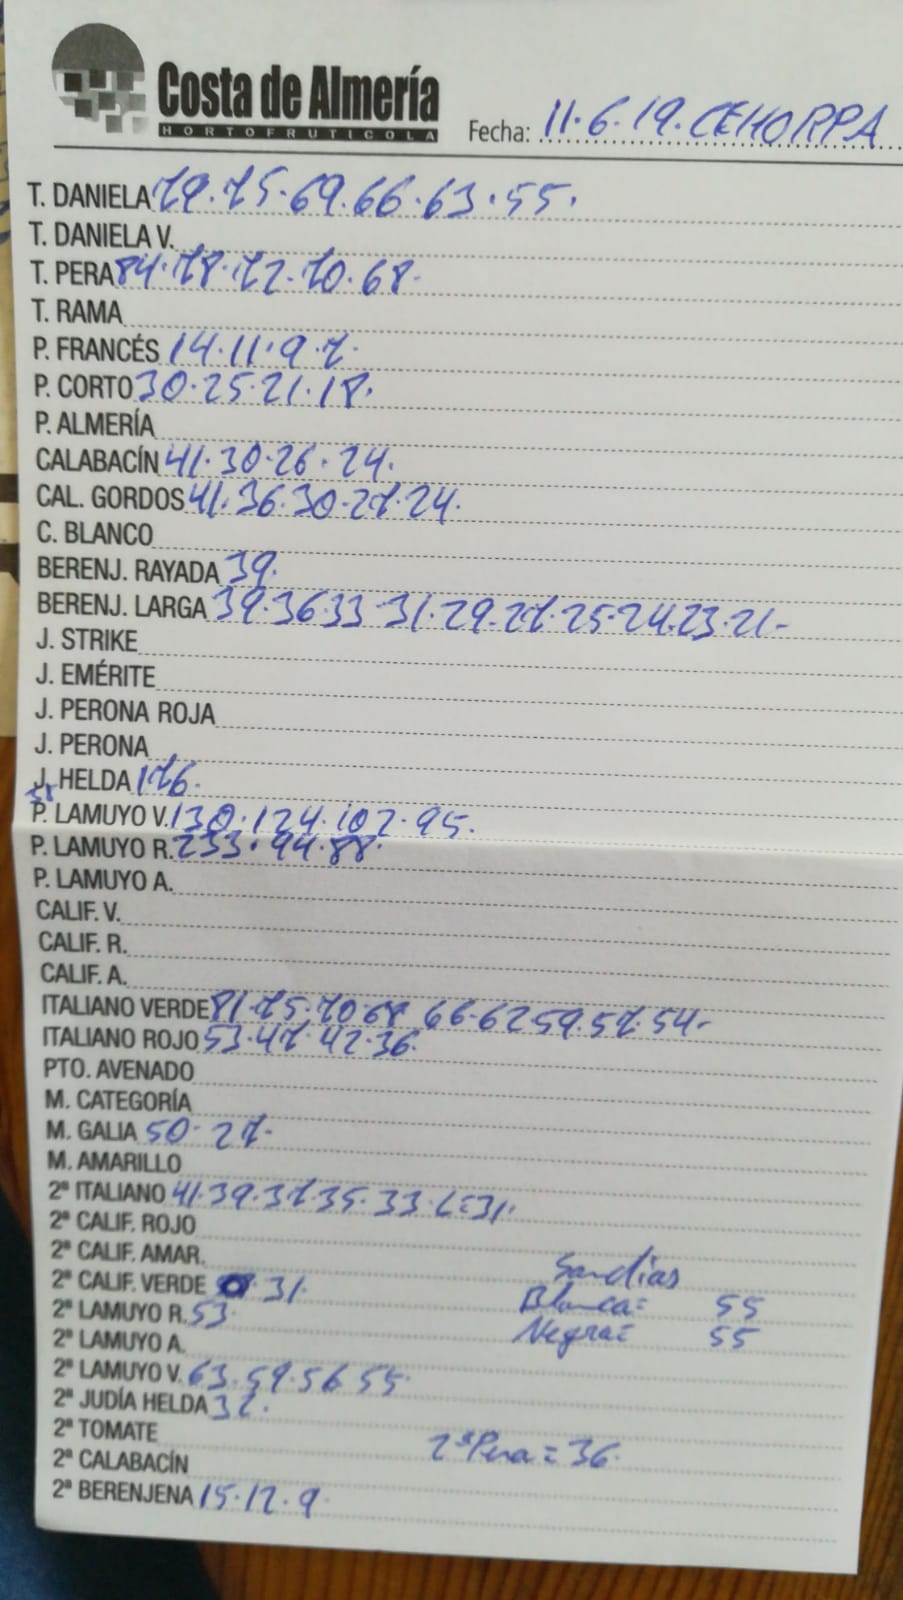 Costa de Almería
HORTOFRUTICOLA
Fecha: 11.6.19. CEHORPA
T. DANIELA 79.75.69.66.63.55.
T. DANIELA V.
T. PERA 84.78.72.70.68.
T. RAMA
P. FRANCÉS 14.11.9.7.
P. CORTO 30.25.21.18.
P. ALMERÍA
CALABACÍN 41.30.26.24.
CAL. GORDOS 41.36.30.27.24.
C. BLANCO
BERENJ. RAYADA 39.
BERENJ. LARGA 39.36.33-31.29.27.25-24.23.21-
J. STRIKE
J. EMÉRITE
J. PERONA ROJA
J. PERONA
J. HELDA 176.
P. LAMUYO V. 130.124.102.95.
P. LAMUYO R. 233.94.88.
P. LAMUYO A.
CALIF. V.
CALIF. R.
CALIF. A.
ITALIANO VERDE 81.75.70.68 66-62 59.57.54-
ITALIANO ROJO 53.47.42.36.
PTO. AVENADO
M. CATEGORÍA
M. GALIA 50.27.
M. AMARILLO
2ª ITALIANO 41.39.37.35.33.L=31.
2ª CALIF. ROJO
2ª CALIF. AMAR.
Sandias
2ª CALIF. VERDE 31.
Blanca= 55
2ª LAMUYO R. 53.
Negra= 55
2ª LAMUYO A.
2ª LAMUYO V. 63.59.56.55.
2ª JUDÍA HELDA 32.
2ª TOMATE
2ª Pera = 36.
2ª CALABACÍN
2ª BERENJENA 15.12.9